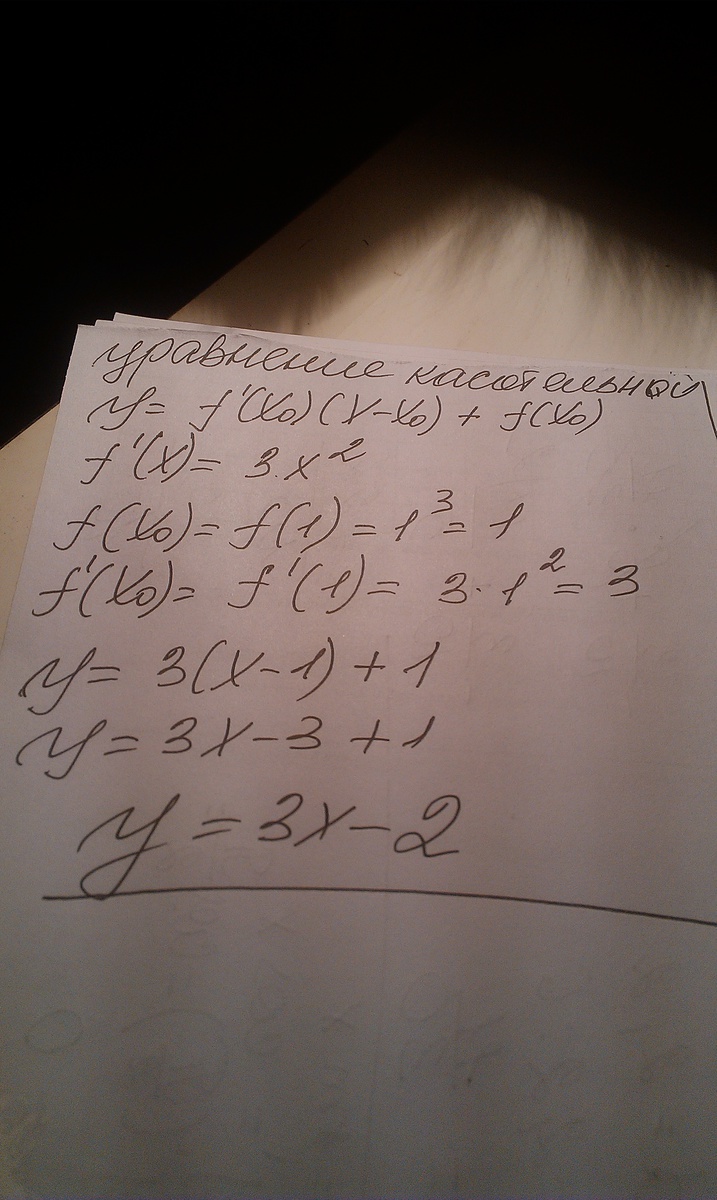 уравнение касательной
y = f'(x₀)(x-x₀) + f(x₀)
f'(x) = 3·x²
f(x₀) = f(1) = 1³ = 1
f'(x₀) = f'(1) = 3·1² = 3
y = 3(x-1) + 1
y = 3x - 3 + 1
y = 3x - 2